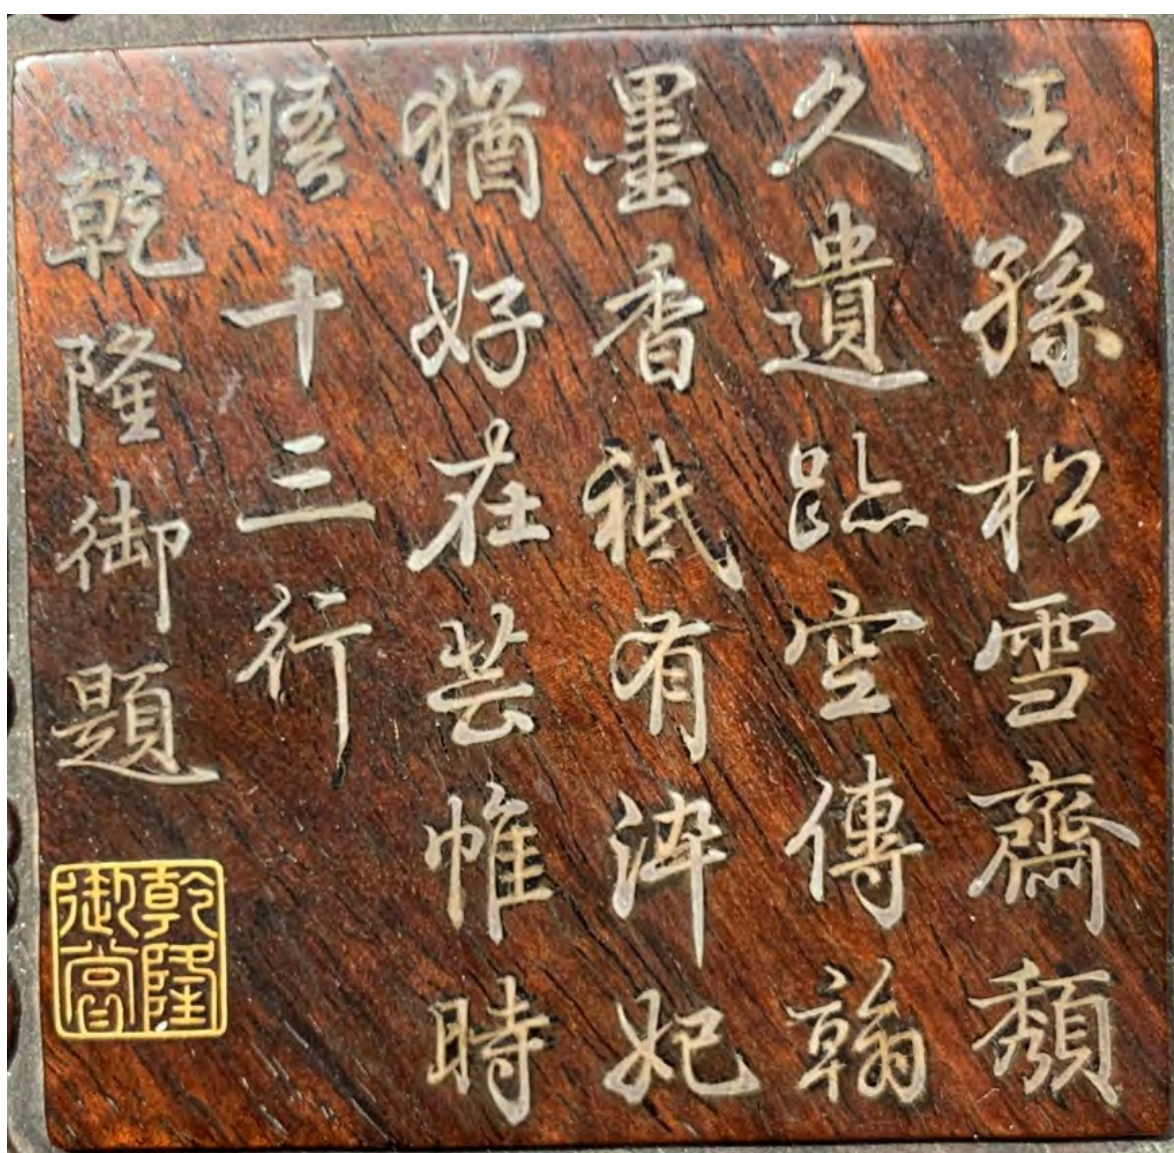 王孫松雪齋頹
久遺跡空傳翰
墨香祗有淬妃
猶好在芸帷時
晤十三行
乾隆御題
乾隆
御賞